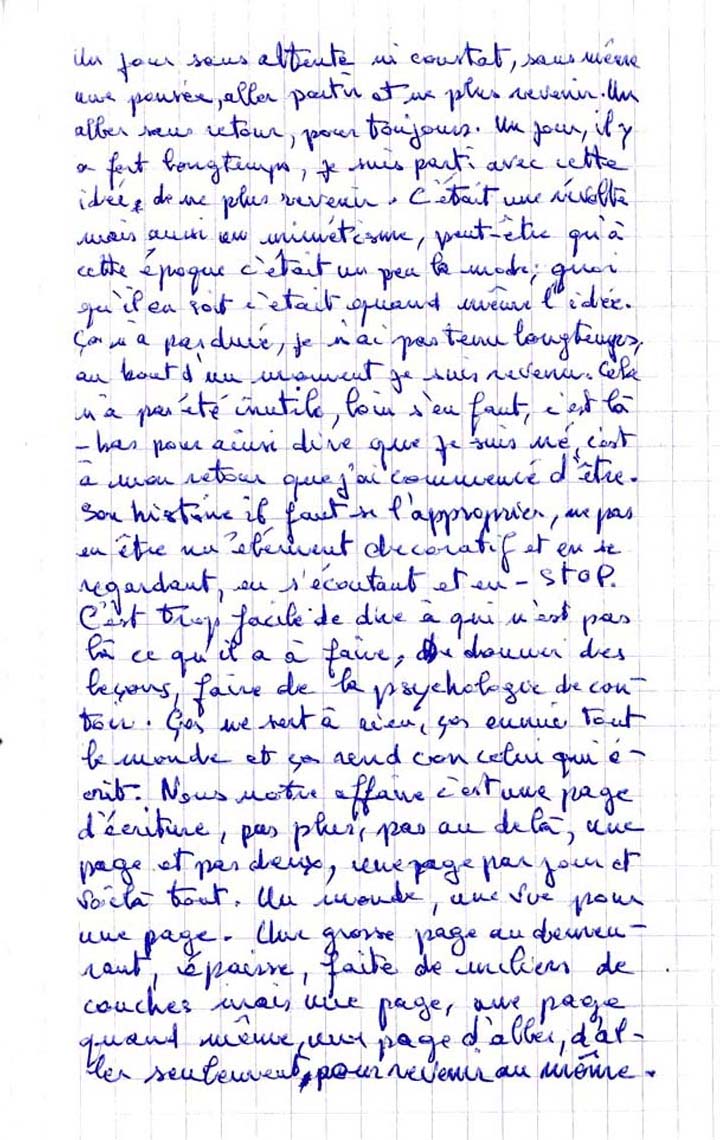 Un jour sans attente ni constat, sans même
une pensée, aller partir et ne plus revenir. Un
aller sans retour, pour toujours. Un jour, il y
a fort longtemps, je suis parti avec cette
idée, de ne plus revenir. C'était une révolte
mais aussi un mimétisme, peut-être qu'à
cette époque c'était un peu la mode; quoi
qu'il en soit c'était quand même l'idée.
Ça n'a pas duré, je n'ai pas tenu longtemps,
au bout d'un moment je suis revenu. Cela
n'a pas été inutile, loin s'en faut, c'est là
-bas pour ainsi dire que je suis né, c'est
à mon retour que j'ai commencé d'être.
Son histoire il faut se l'approprier, ne pas
en être un élément décoratif et en se
regardant, en s'écoutant et en - STOP.
C'est trop facile de dire à qui n'est pas
là ce qu'il a à faire, de donner des
leçons, faire de la psychologie de con-
toir. Ça ne sert à rien, ça ennuie tout
le monde et ça rend con celui qui é-
crit. Nous notre affaire c'est une page
d'écriture, pas plus, pas au delà, une
page et pas deux, une page par jour et
voilà tout. Un monde, une vie pour
une page. Une grosse page au demeu-
rant, épaisse, faite de milliers de
couches mais une page, une page
quand même, une page d'aller, d'al-
ler seulement, pour revenir au même.